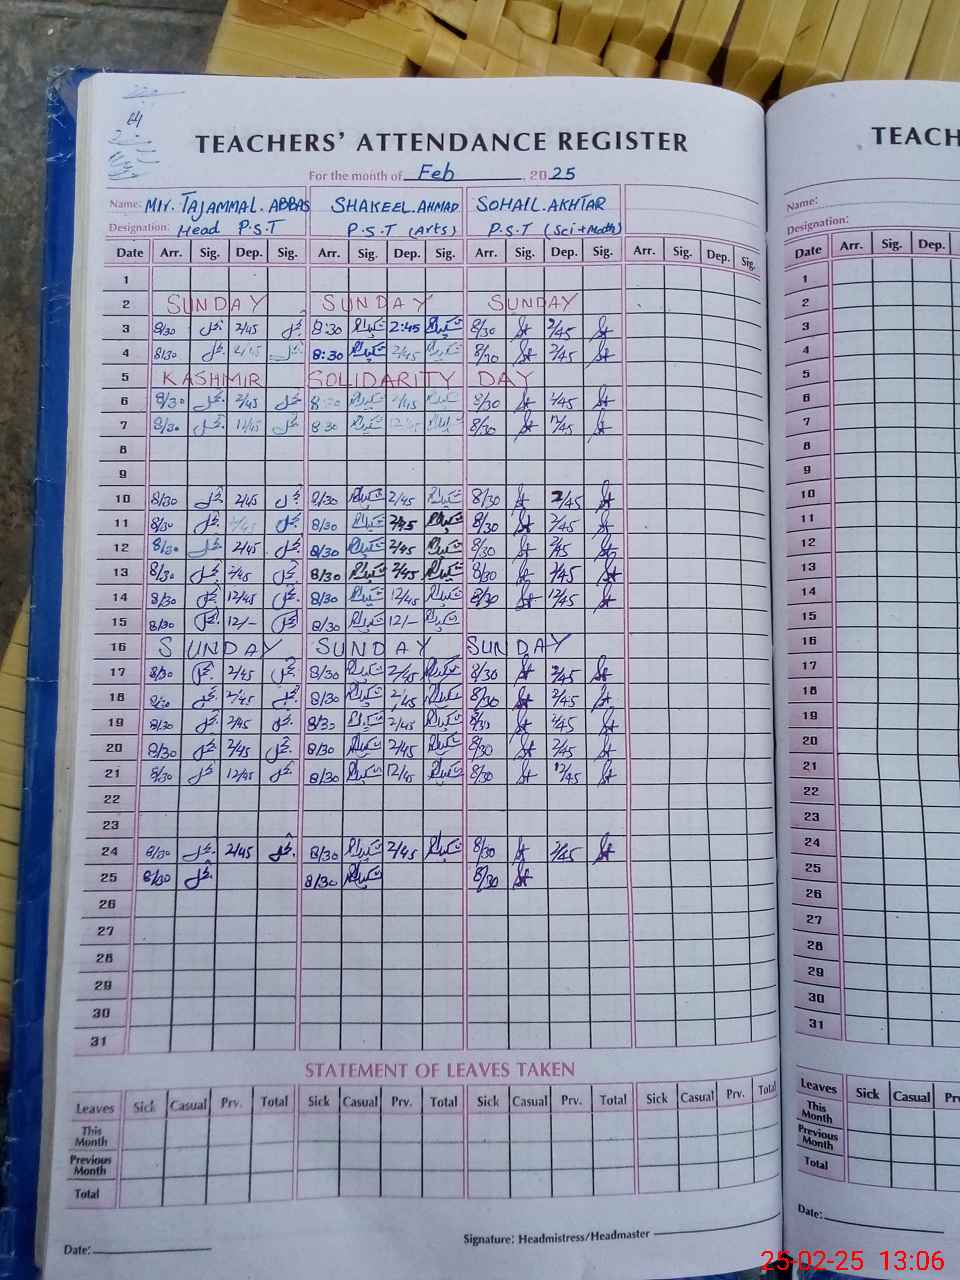 TEACHERS' ATTENDANCE REGISTER
For the month of Feb, 2025
Name: Mir. TAJAMMAL. ABBAS SHAKEEL. AHMAD SOHAIL. AKHTAR
Designation: Head P.S.T P.S.T (Arts) P.S.T (Sci+Math)
Date Arr. Sig. Dep. Sig. Arr. Sig. Dep. Sig. Arr. Sig. Dep. Sig. Arr. Sig. Dep. Sig.
1
2 SUNDAY SUNDAY SUNDAY
3 8/30 2/45 8:30 شکیل 2:45 شکیل 8/30 2/45
4 8/30 2/45 8:30 شکیل 2/45 شکیل 8/30 2/45
5 KASHMIR SOLIDARITY DAY
6 8/30 2/45 8:30 شکیل 2/45 شکیل 8/30 2/45
7 8/30 12/45 8:30 شکیل 12/45 شکیل 8/30 12/45
8
9
10 8/30 2/45 8/30 شکیل 2/45 شکیل 8/30 2/45
11 8/30 2/45 8/30 شکیل 2/45 شکیل 8/30 2/45
12 8/30 2/45 8/30 شکیل 2/45 شکیل 8/30 2/45
13 8/30 2/45 8/30 شکیل 2/45 شکیل 8/30 2/45
14 8/30 12/45 8/30 شکیل 12/45 شکیل 8/30 12/45
15 8/30 12/- 8/30 شکیل 12/- شکیل
16 SUNDAY SUNDAY SUNDAY
17 8/30 2/45 8/30 شکیل 2/45 شکیل 8/30 2/45
18 8/30 2/45 8/30 شکیل 2/45 شکیل 8/30 2/45
19 8/30 2/45 8/30 شکیل 2/45 شکیل 8/30 2/45
20 8/30 2/45 8/30 شکیل 2/45 شکیل 8/30 2/45
21 8/30 12/45 8/30 شکیل 12/45 شکیل 8/30 12/45
22
23
24 8/30 2/45 8/30 شکیل 2/45 شکیل 8/30 2/45
25 8/30 8/30 شکیل 8/30
26
27
28
29
30
31
STATEMENT OF LEAVES TAKEN
Leaves Sick Casual Prv. Total Sick Casual Prv. Total Sick Casual Prv. Total Sick Casual Prv. Total
This Month
Previous Month
Total
Date: Signature: Headmistress/Headmaster
TEACH
Name:
Designation:
Date Arr. Sig. Dep.
1
2
3
4
5
6
7
8
9
10
11
12
13
14
15
16
17
18
19
20
21
22
23
24
25
26
27
28
29
30
31
Leaves Sick Casual
This Month
Previous Month
Total
Date:
25-02-25 13:06